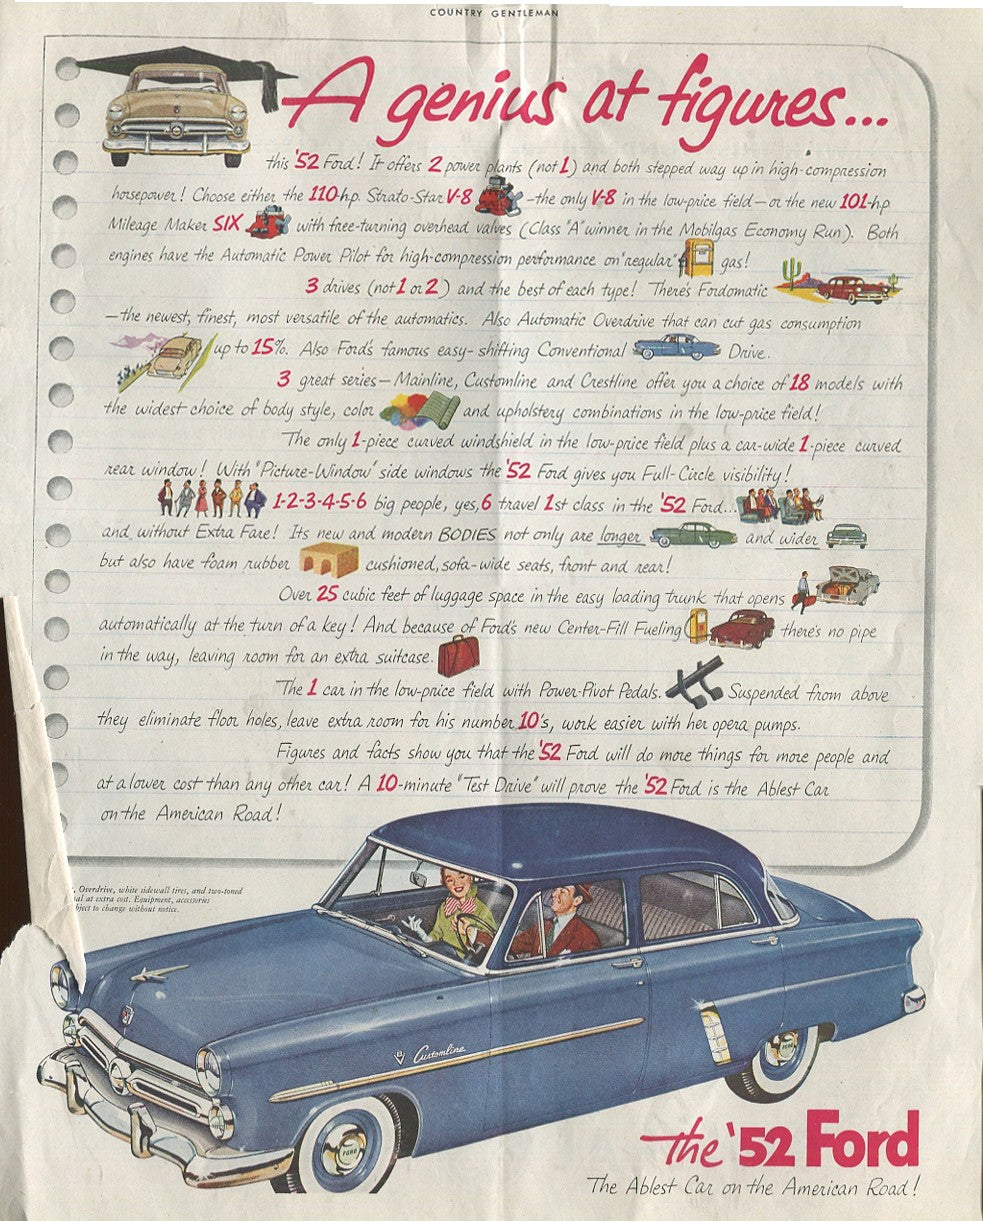 COUNTRY GENTLEMAN
A genius at figures...
this '52 Ford! It offers 2 power plants (not 1) and both stepped way up in high-compression
horsepower! Choose either the 110-hp. Strato-Star V-8 –the only V-8 in the low-price field—or the new 101-hp
Mileage Maker SIX with free-turning overhead valves (Class "A" winner in the Mobilgas Economy Run). Both
engines have the Automatic Power Pilot for high-compression performance on "regular" gas!
3 drives (not 1 or 2) and the best of each type! There's Fordomatic
—the newest, finest, most versatile of the automatics. Also Automatic Overdrive that can cut gas consumption
up to 15%. Also Ford's famous easy-shifting Conventional Drive.
3 great series—Mainline, Customline and Crestline offer you a choice of 18 models with
the widest choice of body style, color and upholstery combinations in the low-price field!
The only 1-piece curved windshield in the low-price field plus a car-wide 1-piece curved
rear window! With "Picture-Window" side windows the '52 Ford gives you Full-Circle visibility!
1-2-3-4-5-6 big people, yes, 6 travel 1st class in the '52 Ford...
and without Extra Fare! Its new and modern BODIES not only are longer and wider
but also have foam rubber cushioned, sofa-wide seats, front and rear!
Over 25 cubic feet of luggage space in the easy loading trunk that opens
automatically at the turn of a key! And because of Ford's new Center-Fill Fueling there's no pipe
in the way, leaving room for an extra suitcase.
The 1 car in the low-price field with Power-Pivot Pedals. Suspended from above
they eliminate floor holes, leave extra room for his number 10's, work easier with her opera pumps.
Figures and facts show you that the '52 Ford will do more things for more people and
at a lower cost than any other car! A 10-minute "Test Drive" will prove the '52 Ford is the Ablest Car
on the American Road!
Overdrive, white sidewall tires, and two-toned
at extra cost. Equipment, accessories
to change without notice.
Customline
FORD
FORD
the '52 Ford
The Ablest Car on the American Road!